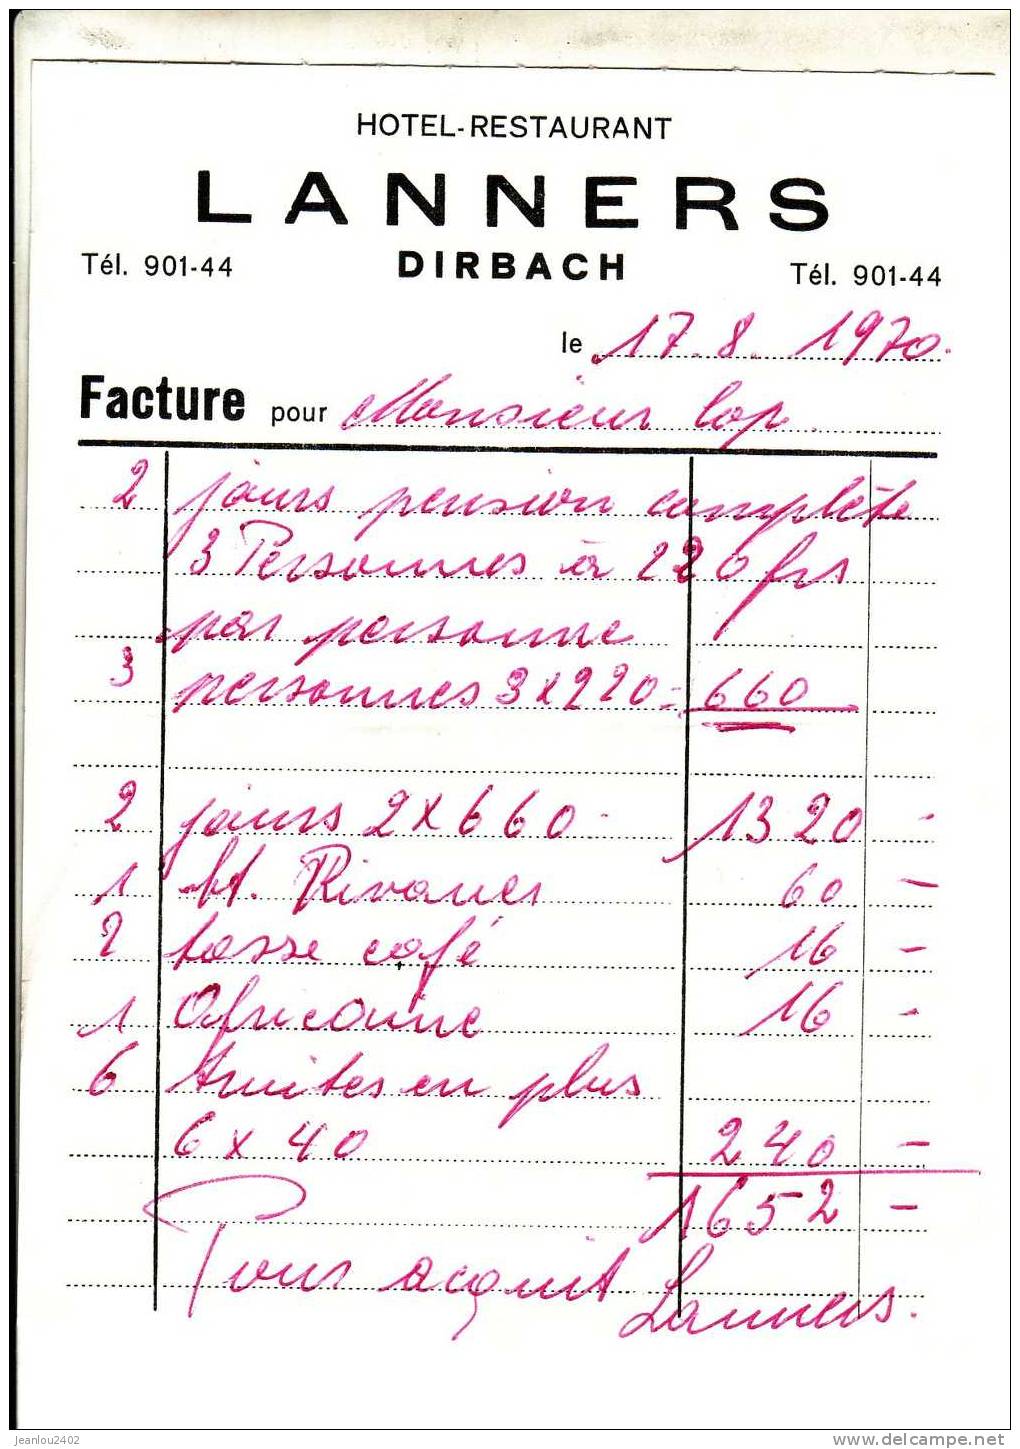 HOTEL-RESTAURANT
LANNERS
Tél. 901-44 DIRBACH Tél. 901-44
le 17.8. 1970.
Facture pour Monsieur Lop.
2 jours pension complète
3 Personnes à 220 frs
par personne
3 personnes 3 x 220 = 660
2 jours 2 x 660 1320 -
1 bt. Rivaner 60 -
2 tasse café 16 -
1 Africaine 16 -
6 truites en plus
6 x 40 240 -
1652 -
Pour acquit Lanners.
jeanlou2402
www.delcampe.net